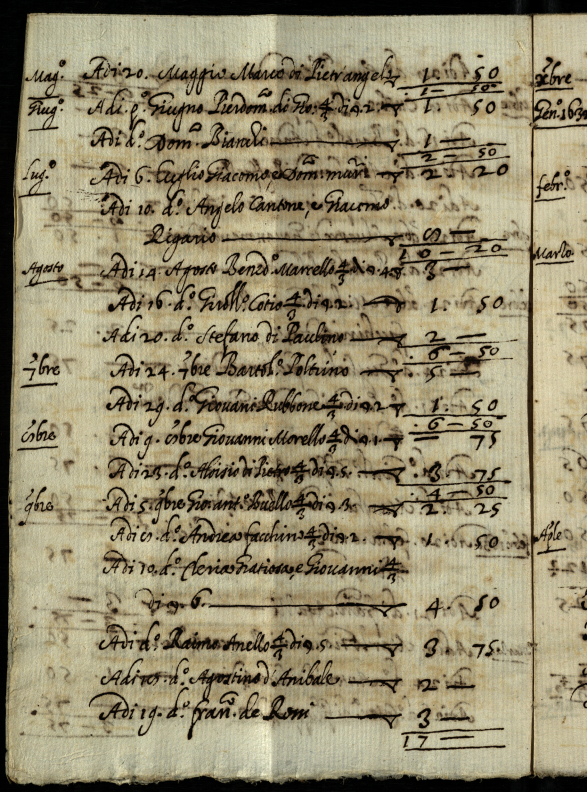 Mag.º Adi 20. Maggio Marco di Pietrangel 1. 50
: 1 — 50
Giug.º Adi p.º Giugno Pierdom.º di 4/3 di q. 2. 1. 50
Adi d.º Dom.º 1 —
2 — 50
Lug.º Adi 6. Luglio Giacomo, e Dom.º 2 20
Adi 10. d.º Angelo Cantone, e Giacomo
Rigario 8 —
10 — 20
Agosto Adi 14. Agosto Bened.º Marcello 4/3 di q. 4 3 —
Adi 16. d.º Cotio 4/3 di q. 2. 1. 50
Adi 20. d.º Stefano di Paulino 2 —
: 6 — 50
7bre Adi 24. 7bre Bartol.º Poltrino 5 —
Adi 29. d.º Giovani Rubbone 4/3 di q. 2 1. 50
: 6 — 50
8bre Adi 9. 8bre Giovanni Morello 4/3 di q. 1 — 75
Adi 23. d.º Aloisio di Pietro 4/3 di q. 5. 3. 75
: 4 — 50
9bre Adi 5. 9bre Gio: ant.º 4/3 di q. 3. 2. 25
Adi d.º Andrea facchino 4/3 di q. 2. 1. 50
Adi 10. d.º Cleria Gratiosa, e Giovanni 4/3
di q. 6. 4. 50
Adi d.º Raimo Anello 4/3 di q. 5. 3 75
Adi d.º Agostino d'Anibale 2 —
Adi 19. d.º fran.º de Roni 3 —
17 —
Xbre
Gen.º 163
febr.º
Marzo
Aple